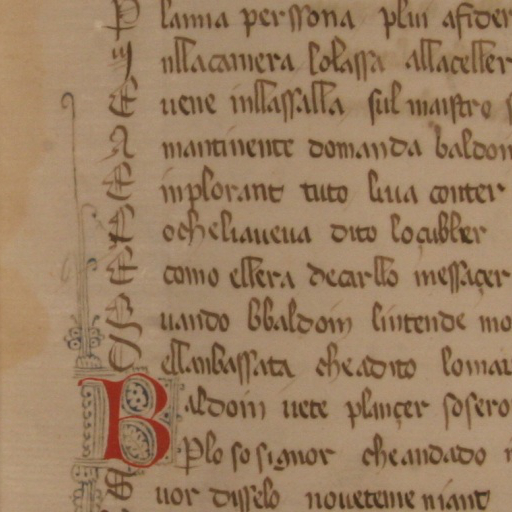 P lamia perssona plui afider
I nlla camera lolassa allaceller
E uene inllassalla sul maistro s
A mantinente domanda baldoin
E inplorant tuto liua conter
E ocheliaueua dito loçubler
E como ellera decarllo messaçer
Q uando bbaldoin lintende mo
O ellanbassata cheadito lomai
B aldoin uete plançer sosero
P lo so signor cheandado
A uor disselo noueteme niant